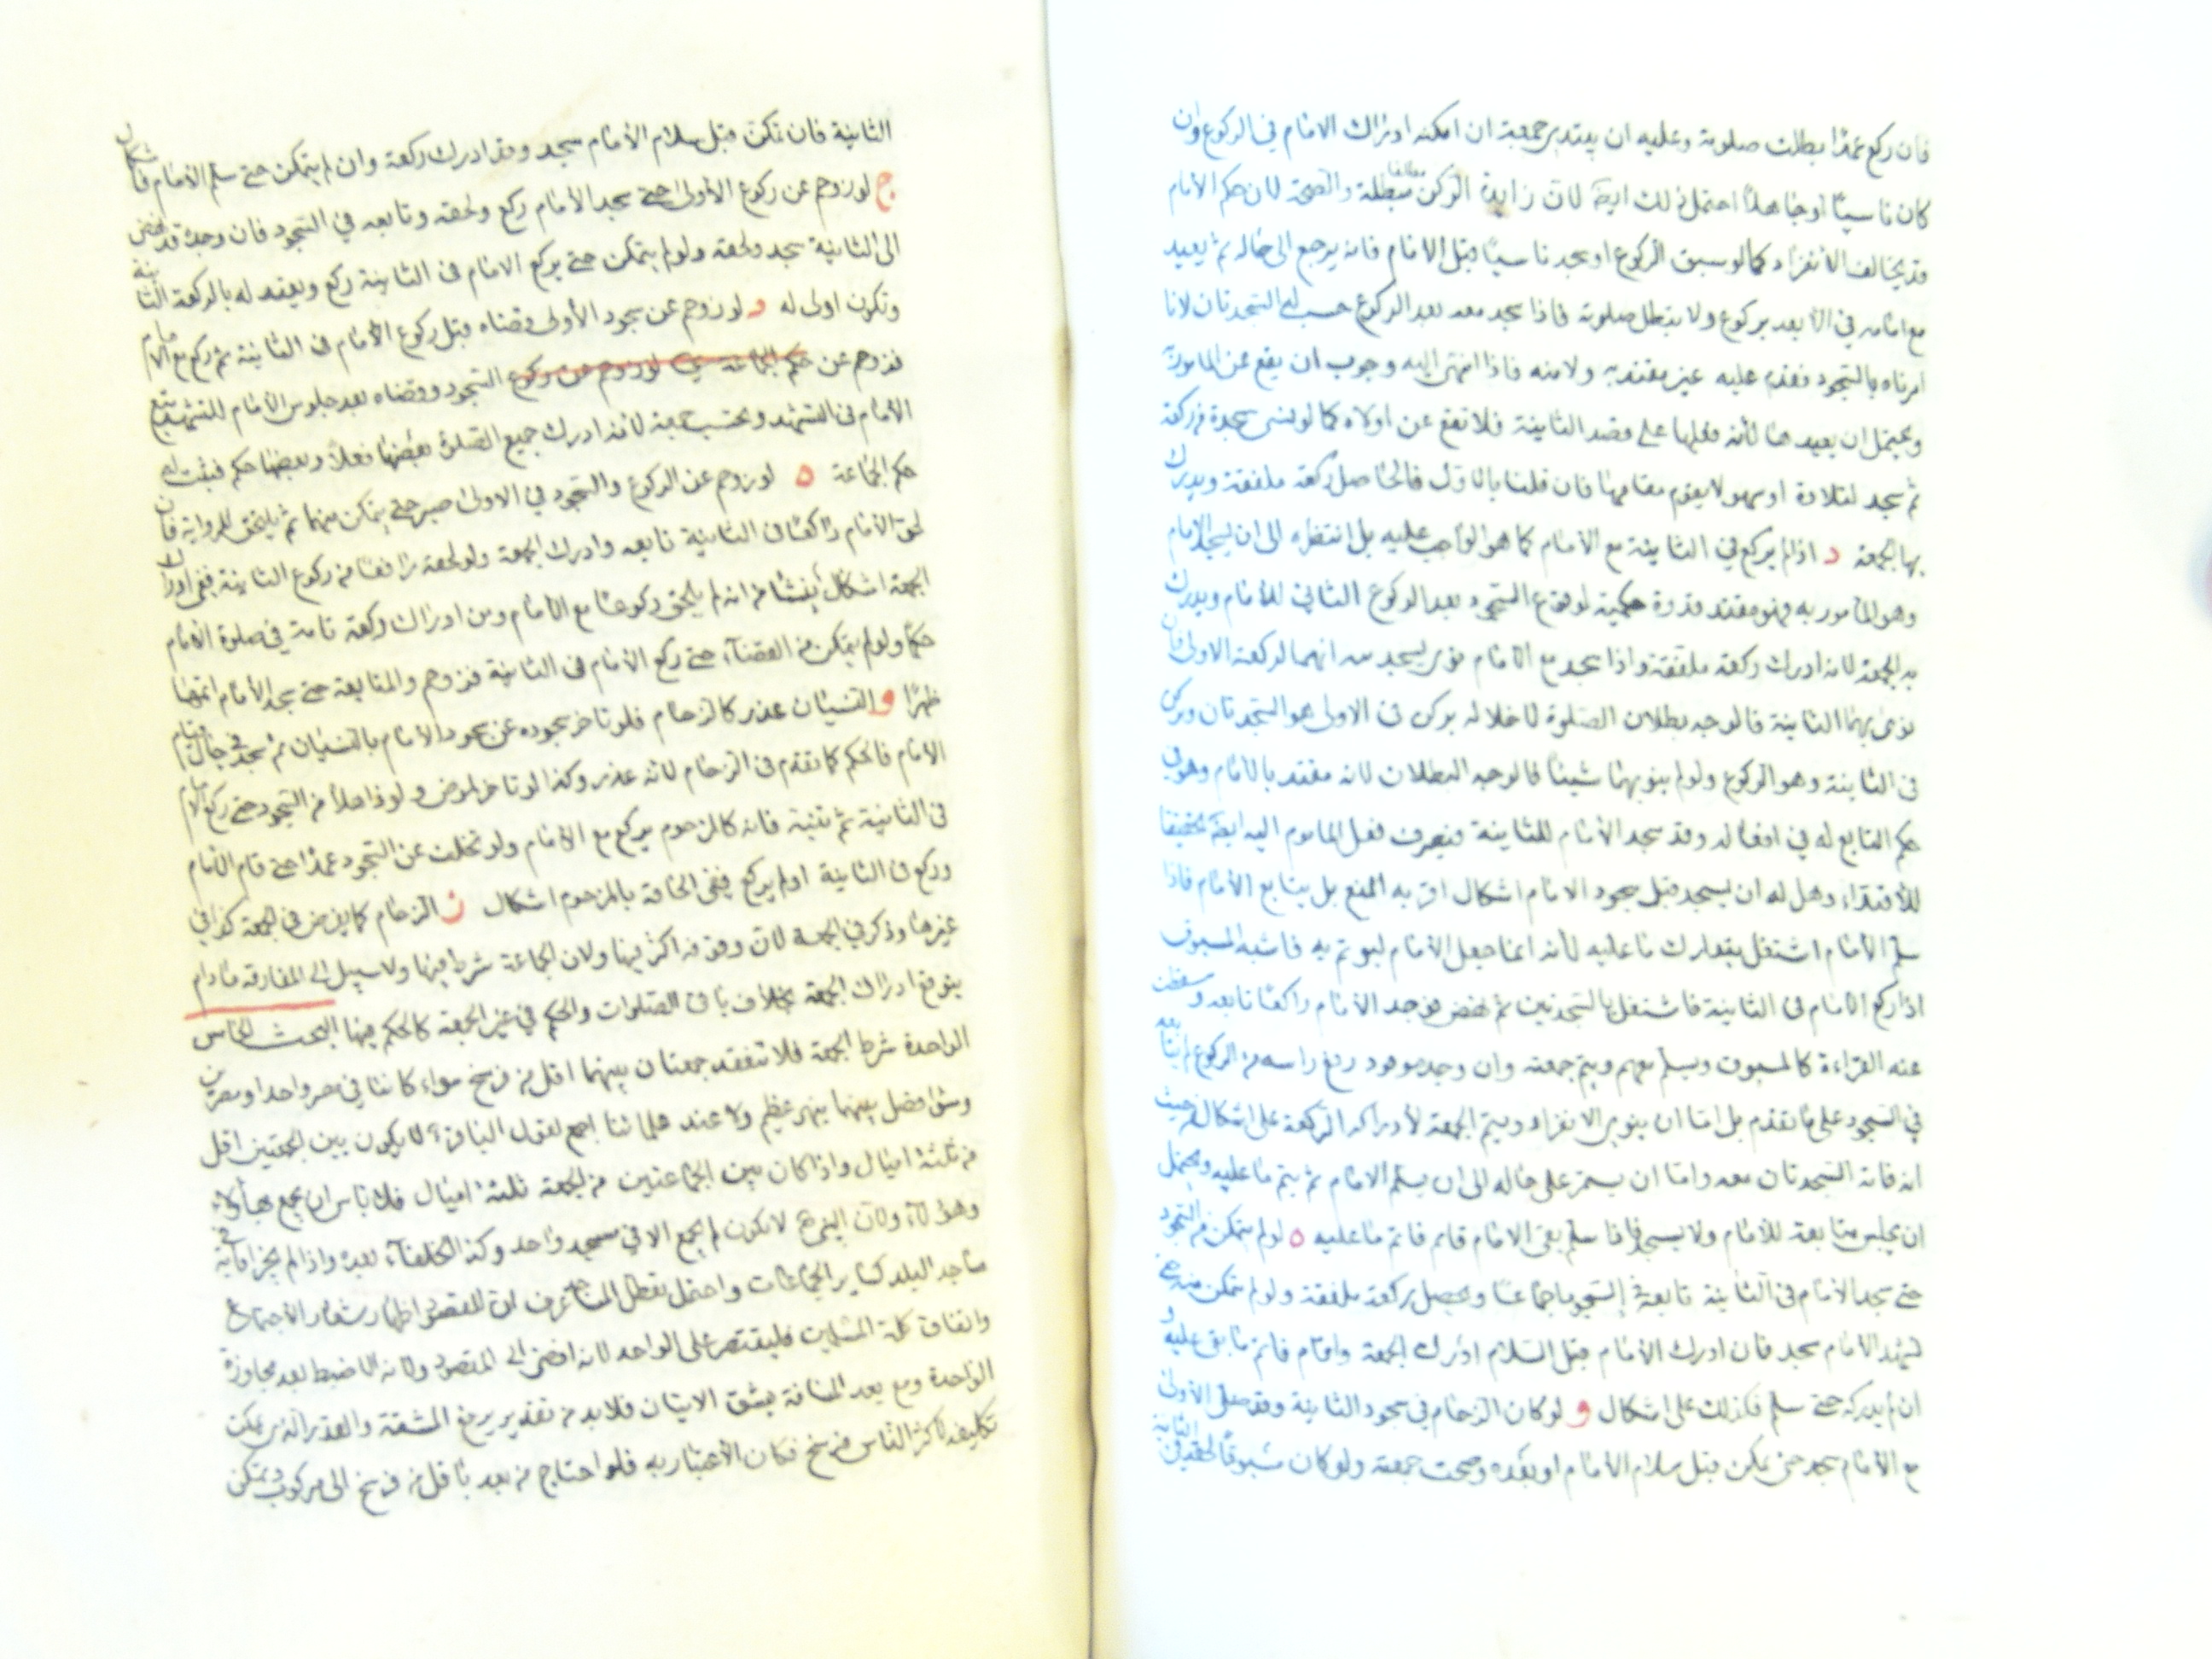 فان ركع عمدا بطلت صلوته وعليه ان يبتدئ جمعية ان امكنه ادراك الامام في الركوع وان
كان ناسيا او جاهلا احتمل ذلك ايضا لان زيادة الركن مطلقا مبطلة والصحة لان حكم الامام
قد يخالف الانفراد كما لو سبق الركوع او سجد ناسيا قبل الامام فانه يرجع الى حاله ثم يعيد
مع امامه في الا بعد بركوع ولا تبطل صلوته فاذا سجد معه بعد الركوع حسب له السجدتان لانا
امرناه بالسجود فقدم عليه غير معتد به ولامنه فاذا انتهى اليه وجوب ان يقع عن المامور به
ويحتمل ان يعيدهما لانه فعلها على قصد الثانية فلا تقع عن اولاه كما لو نسى سجدة من ركعة
ثم سجد لتلاوة او سهو لا يقوم مقامها فان قلنا بالاول فالحاصل ركعة ملفقة ويدرك
بها الجمعة د اذا لم يركع في الثانية مع الامام كما هو الواجب عليه بل انتظره الى ان يسجد الامام
وهو المامور به فهو مقتد قدوة حكمية لوقوع السجود بعد الركوع الثاني للامام ويدرك
به الجمعة لانه ادرك ركعة ملفقة واذا سجد مع الامام نوى بسجدتيه انهما لركعة الاولى فان
نوى بهما الثانية فالوجه بطلان الصلوة لاخلاله بركن في الاولى هو السجدتان وركن
في الثانية وهو الركوع ولو لم ينو بهما شيئا فالوجه البطلان لانه مقتد بالامام وهو في
حكم التابع له في افعاله وقد سجد الامام للثانية فينصرف فعل الماموم اليه ايضا تحقيقا
للاقتداء وهل له ان يسجد قبل سجود الامام اشكال اقربه المنع بل يتابع الامام فاذا
سلم الامام اشتغل بتدارك ما عليه لانه انما جعل الامام ليؤتم به فاشبه المسبوق
اذا ركع الامام في الثانية فاشتغل بالسجدتين ثم نهض فوجد الامام راكعا تابعه وسقطت
عنه القراءة كالمسبوق ويسلم معهم ويتم جمعته وان وجده وقد رفع راسه من الركوع لم يتابعه
في السجود على ما تقدم بل اما ان ينوى الانفراد ويتم الجمعة لادراكه الركعة على اشكال من حيث
انه فاته السجدتان معه واما ان يستمر على حاله الى ان يسلم الامام ثم يتم ما عليه ويحتمل
ان يجلس متابعة للامام ولا يسجد فاذا سلم بقى الامام قام فاتم ما عليه ه لو لم يتمكن من السجود
حتى سجد الامام في الثانية تابعه في السجود اجماعا ويحصل ركعة ملفقة ولو لم يتمكن منه حتى
تشهد الامام سجد فان ادرك الامام قبل السلام ادرك الجمعة وقام فاتم ما بقى عليه و
ان لم يدركه حتى سلم فكذلك على اشكال و لو كان الزحام في سجود الثانية وقد صلى الاولى
مع الامام سجد حتى تمكن قبل سلام الامام او بعده وصحت جمعته ولو كان مسبوقا لحقه في الثانية
الثانية فان تمكن قبل سلام الامام سجد وقد ادرك ركعة وان لم يتمكن حتى سلم الامام فاشكال
ج لو زوحم عن ركوع الاولى حتى سجد الامام ركع ولحقه وتابعه في السجود فان وجده قد نهض
الى الثانية سجد ولحقه ولو لم يتمكن حتى يركع الامام في الثانية ركع ويعتد له بالركعة الثانية
وتكون اولى له د لو زوحم عن سجود الاولى وقضاه قبل ركوع الامام في الثانية ثم ركع مع الامام
فزوحم عن حكم الجماعة لو زوحم عن ركوع السجود وقضاه بعد جلوس الامام للتشهد يتبع
الامام في التشهد ويحتسب جمعة لانه ادرك جميع الصلوة بعضها فعلا وبعضها حكم فيثبت له
حكم الجماعة ه لو زوحم عن الركوع والسجود في الاولى صبر حتى يتمكن منهما ثم يلتحق للرواية فان
لحق الامام راكعا في الثانية تابعه وادرك الجمعة ولو لحقه رافعا من ركوع الثانية ففي ادراك
الجمعة اشكال ينشا من انه لم يلحق ركوعا مع الامام ومن ادراك ركعة تامة في صلوة الامام
حكما ولو لم يتمكن من القضاء حتى ركع الامام في الثانية فزوحم والمتابعة حتى سجد الامام اتمها
ظهرا و النسيان عذر كالزحام فلو تاخر سجوده عن سجود الامام بالنسيان ثم سجد في حال قيام
الامام فالحكم كما تقدم في الزحام لانه عذر وكذا لو تاخر لمرض ولو ذاهلا من السجود حتى ركع الامام
في الثانية ثم تنبه فانه كالمزحوم يركع مع الامام ولو تخلف عن السجود عمدا حتى قام الامام
وركع في الثانية او لم يركع ففي الحاقه بالمزحوم اشكال ز الزحام كما يفرض في الجمعة كذا في
غيرها وذكر في الجمعة لان وقوعه اكثر فيها ولان الجماعة شرط فيها ولا سبيل الى المفارقة مادام
يتوقع ادراك الجمعة بخلاف باقي الصلوات والحكم في غير الجمعة كالحكم فيها البحث الخامس
الواحدة شرط الجمعة فلا تنعقد جمعتان بينهما اقل من فرسخ سواء كانتا في مصر واحد او مصرين
وسواء فصل بينهما نهر عظيم ولا عند علمائنا اجمع لقول الباقر ع لا يكون بين الجمعتين اقل
من ثلثة اميال واذا كان بين الجماعتين من الجمعة ثلثة اميال فلا باس ان يجمع بهؤلاء
وهؤلاء ولان النبي ص لم يجمع الا في مسجد واحد وكذا الخلفاء بعده واذا لم يجز اقامته في
مساجد البلد كساير الجماعات واحتمل تعطل المساجد عرف ان المقصود اظهار شعار الاجتماع
واتفاق كلمة المسلمين فليقتصر على الواحد لانه افضى الى المقصود ولانه لا ضبط بعد مجاوزة
الواحدة ومع بعد المسافة يشق الاتيان فلا بد من تقدير يرفع المشقة والقدر الذي يمكن
تكليفه لاكثر الناس فرسخ فكان الاعتبار به فلو احتاج من بعد باقل من فرسخ الى مركوب وتمكن